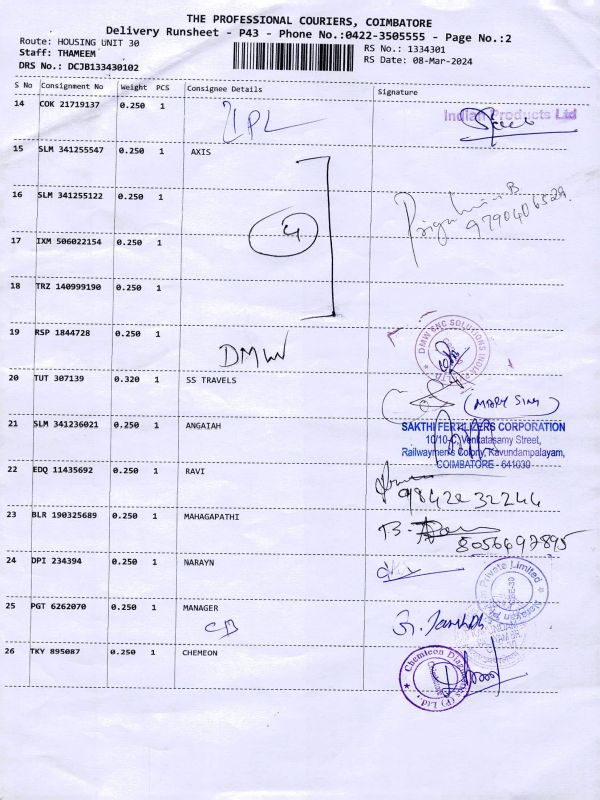 THE PROFESSIONAL COURIERS, COIMBATORE
Delivery Runsheet - P43 - Phone No.:0422-3505555 - Page No.:2
Route: HOUSING UNIT 30
RS No.: 1334301
Staff: THAMEEM
RS Date: 08-Mar-2024
DRS No.: DCJB133430102
S No Consignment No Weight PCS Consignee Details Signature
14 COK 21719137 0.250 1 IPL Indian Products Ltd
15 SLM 341255547 0.250 1 AXIS
16 SLM 341255122 0.250 1
9790406529
17 IXM 506022154 0.250 1 4
18 TRZ 140999190 0.250 1
19 RSP 1844728 0.250 1 DMW DMW SNC SOLUTIONS INDIA
20 TUT 307139 0.320 1 SS TRAVELS
(MARY SINY)
21 SLM 341236021 0.250 1 ANGAIAH SAKTHI FERTILIZERS CORPORATION
10/10-C, Venkatasamy Street,
Railwaymen's Colony, Kavundampalayam,
COIMBATORE - 641030
22 EDQ 11435692 0.250 1 RAVI
9842232244
23 BLR 190325689 0.250 1 MAHAGAPATHI B.
8056697895
24 DPI 234394 0.250 1 NARAYN Narayan Private Limited
25 PGT 6262070 0.250 1 MANAGER
CB
26 TKY 895087 0.250 1 CHEMEON Chemleon (P) Ltd.,